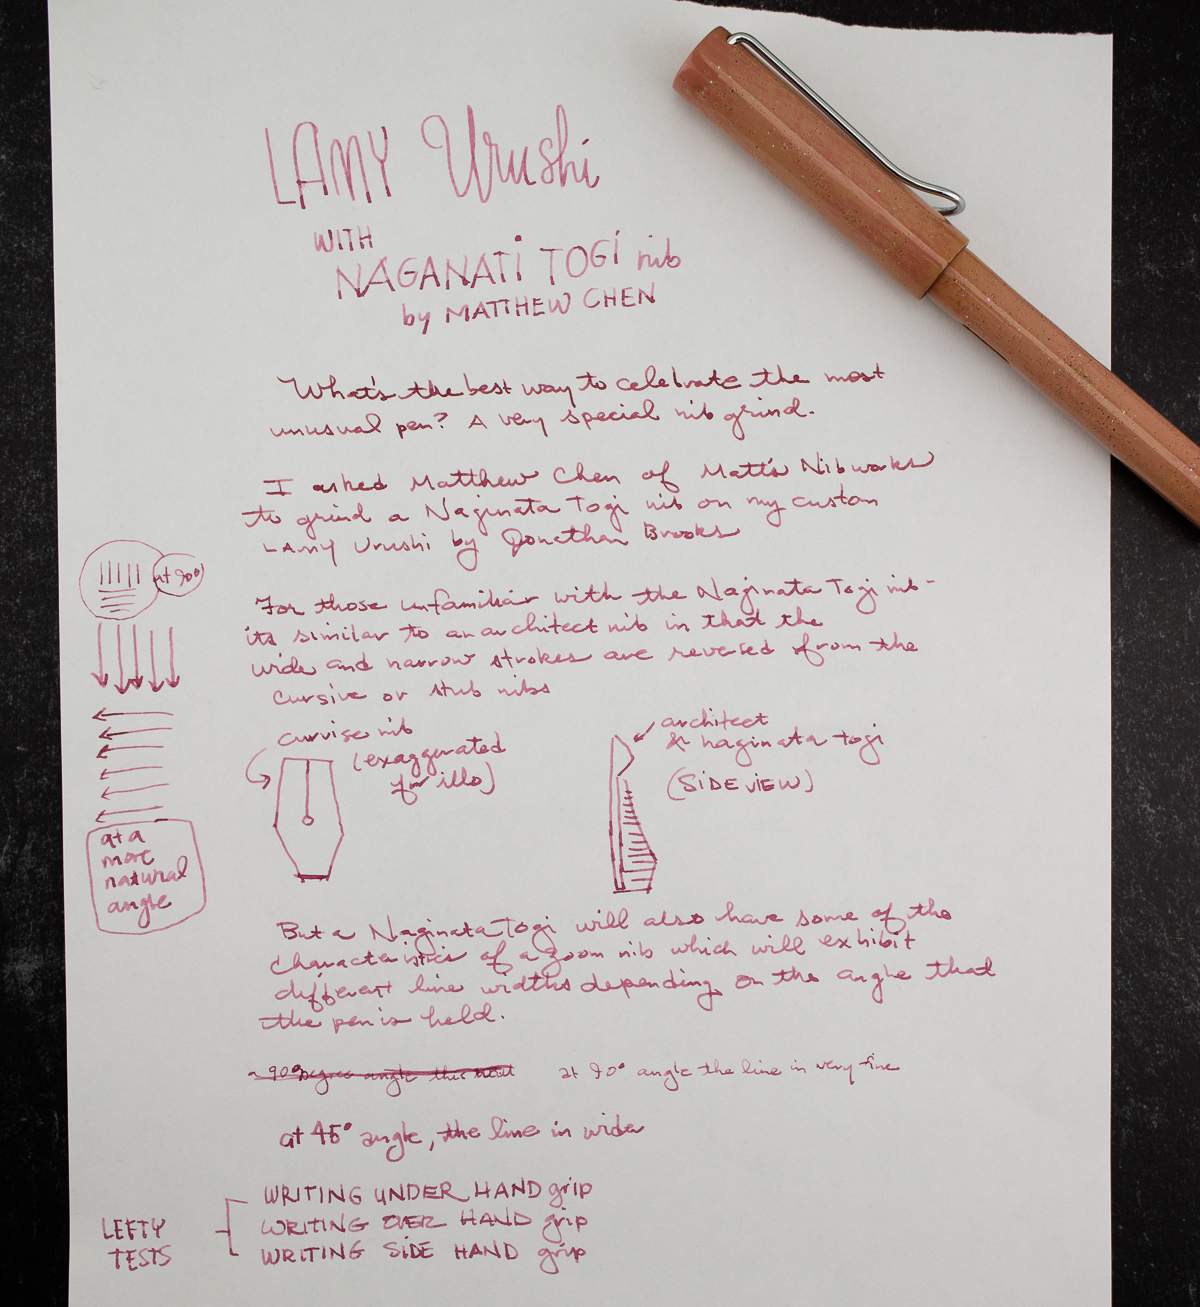 LAMY Urushi
WITH
NAGANATI TOGI nib
by MATTHEW CHEN
What's the best way to celebrate the most
unusual pen? A very special nib grind.
I asked Matthew Chen of Matt's Nibworks
to grind a Naginata Togi nib on my custom
LAMY Urushi by Jonathan Brooks
at 90°
For those unfamiliar with the Naginata Togi nib -
its similar to an architect nib in that the
wide and narrow strokes are reversed from the
cursive or stub nibs
curvise nib
(exaggerated
for illo)
architect
& naginata togi
(SIDE VIEW)
at a
more
natural
angle
But a Naginata Togi will also have some of the
characteristics of a zoom nib which will exhibit
different line widths depending on the angle that
the pen is held.
90° Degree angle this
at 90° angle the line is very fine
at 45° angle, the line is wider
LEFTY
TESTS
WRITING UNDER HAND grip
WRITING OVER HAND grip
WRITING SIDE HAND grip